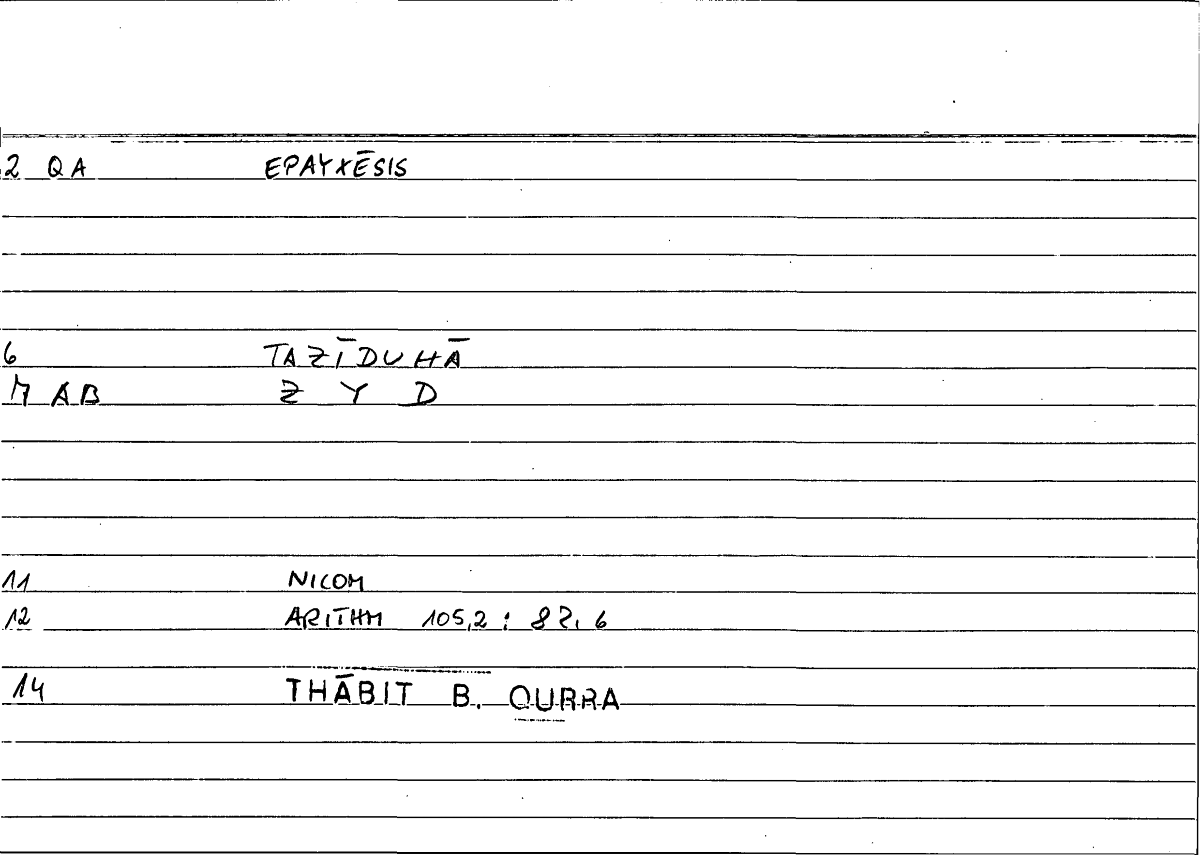 2 QA EPAYXĒSIS
6 TAZĪDUHĀ
7 AB Z Y D
11 NICOM
12 ARITHM 105,2 : 82, 6
14 THĀBIT B. QURRA